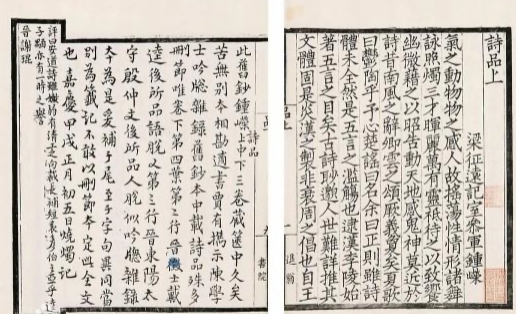 詩品上
梁征遠記室參軍鍾嶸
氣之動物物之感人故搖蕩性情形諸舞
詠照燭三才暉麗萬有靈祇待之以致饗
幽微藉之以昭告動天地感鬼神莫近於
詩昔南風之辭卿雲之頌厥義敻矣夏歌
曰鬱陶乎予心楚謡曰名余曰正則雖詩
體未全然是五言之濫觴也逮漢李陵始
著五言之目矣古詩眇邈人世難詳推其
文體固是炎漢之製非衰周之倡也自王
書院
此舊鈔鍾嶸詩品上中下三卷藏篋中久矣
苦無別本相勘適書賈有攜示陳學
士吟牕雜錄舊鈔本中載詩品殊多
刪節唯卷下第四葉第三行晉徵士戴
逵後所品語脫又第三行晉東陽太
守殷仲文後所品人脫似吟牕雜錄
本為是爰補于尾至于字句異同當
別為籤記不敢以刪節本定此全文
也 嘉慶甲戌正月初五日燒燭記
評曰安道詩雖嫩弱有清工之句裁長補短袁彥伯之亞乎逵
子顒亦有一時之譽
晉謝琨